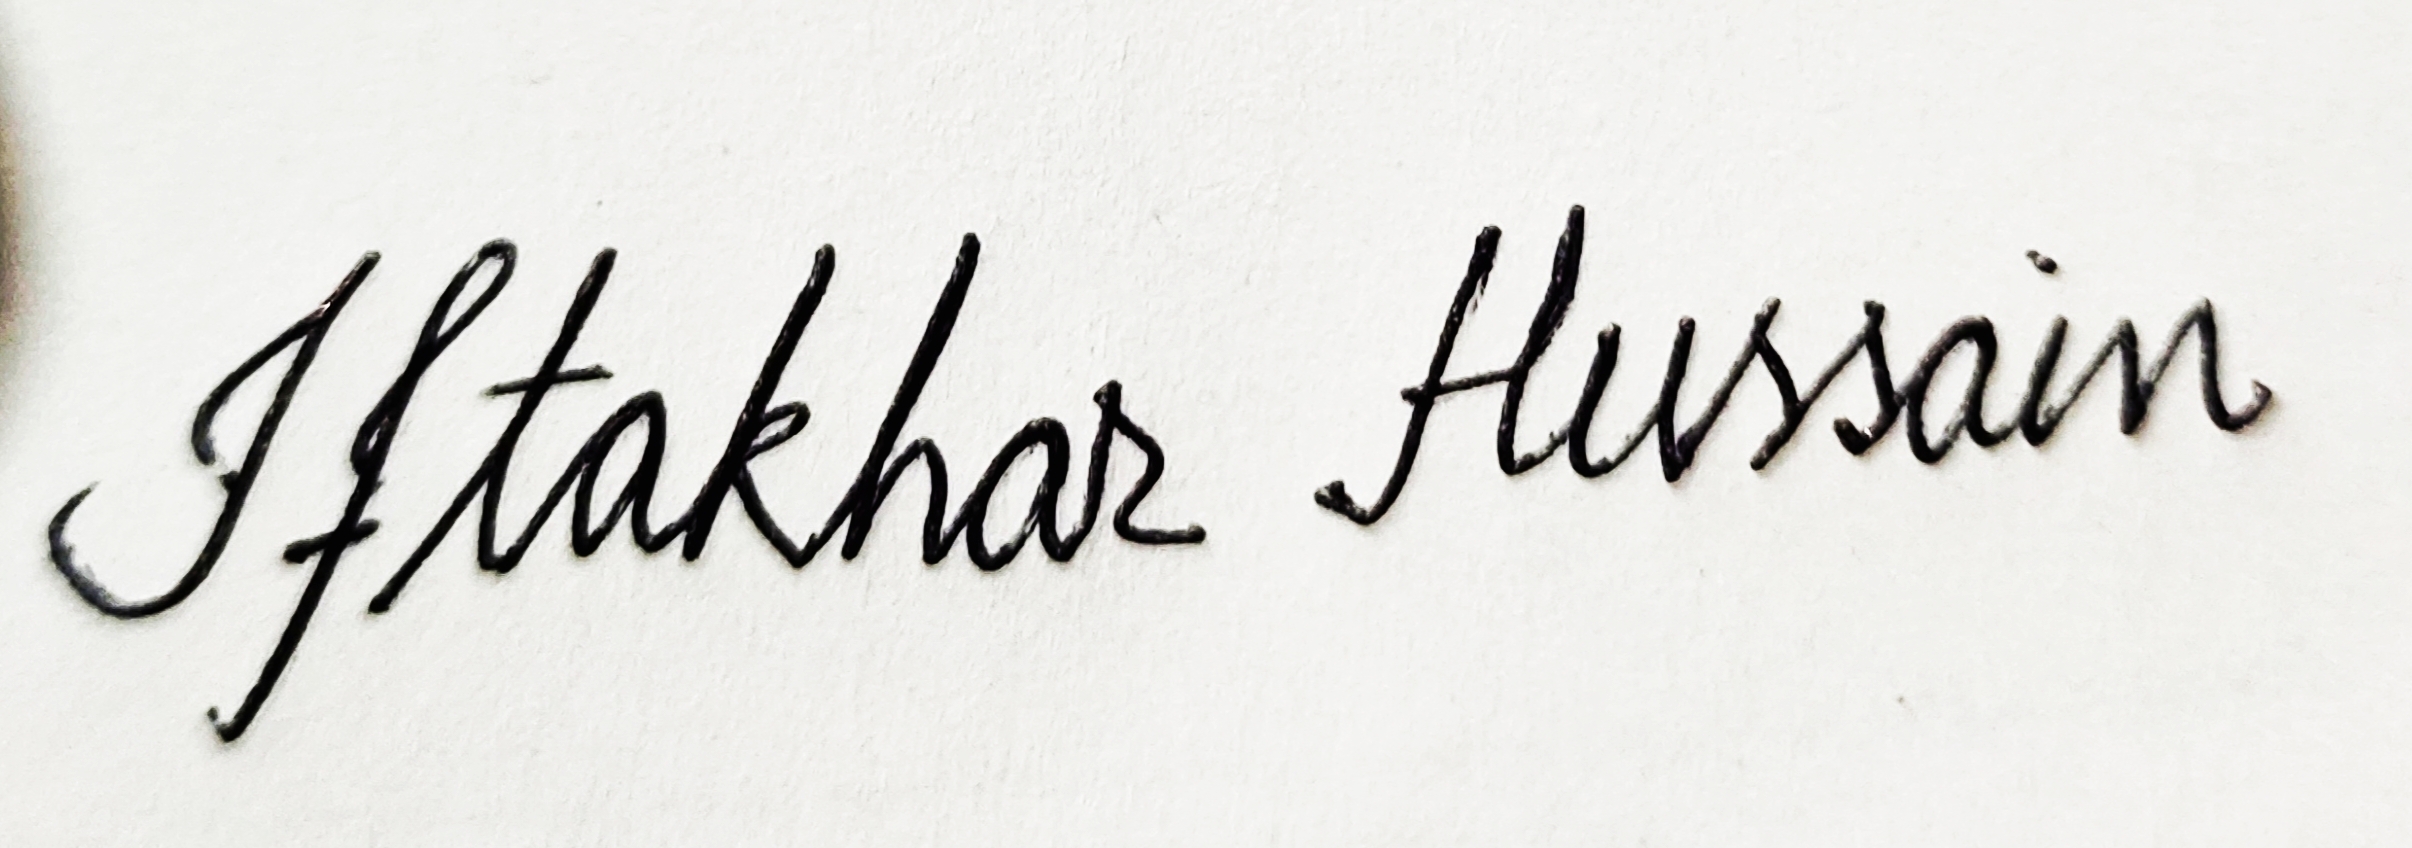 Iftakhar Hussain